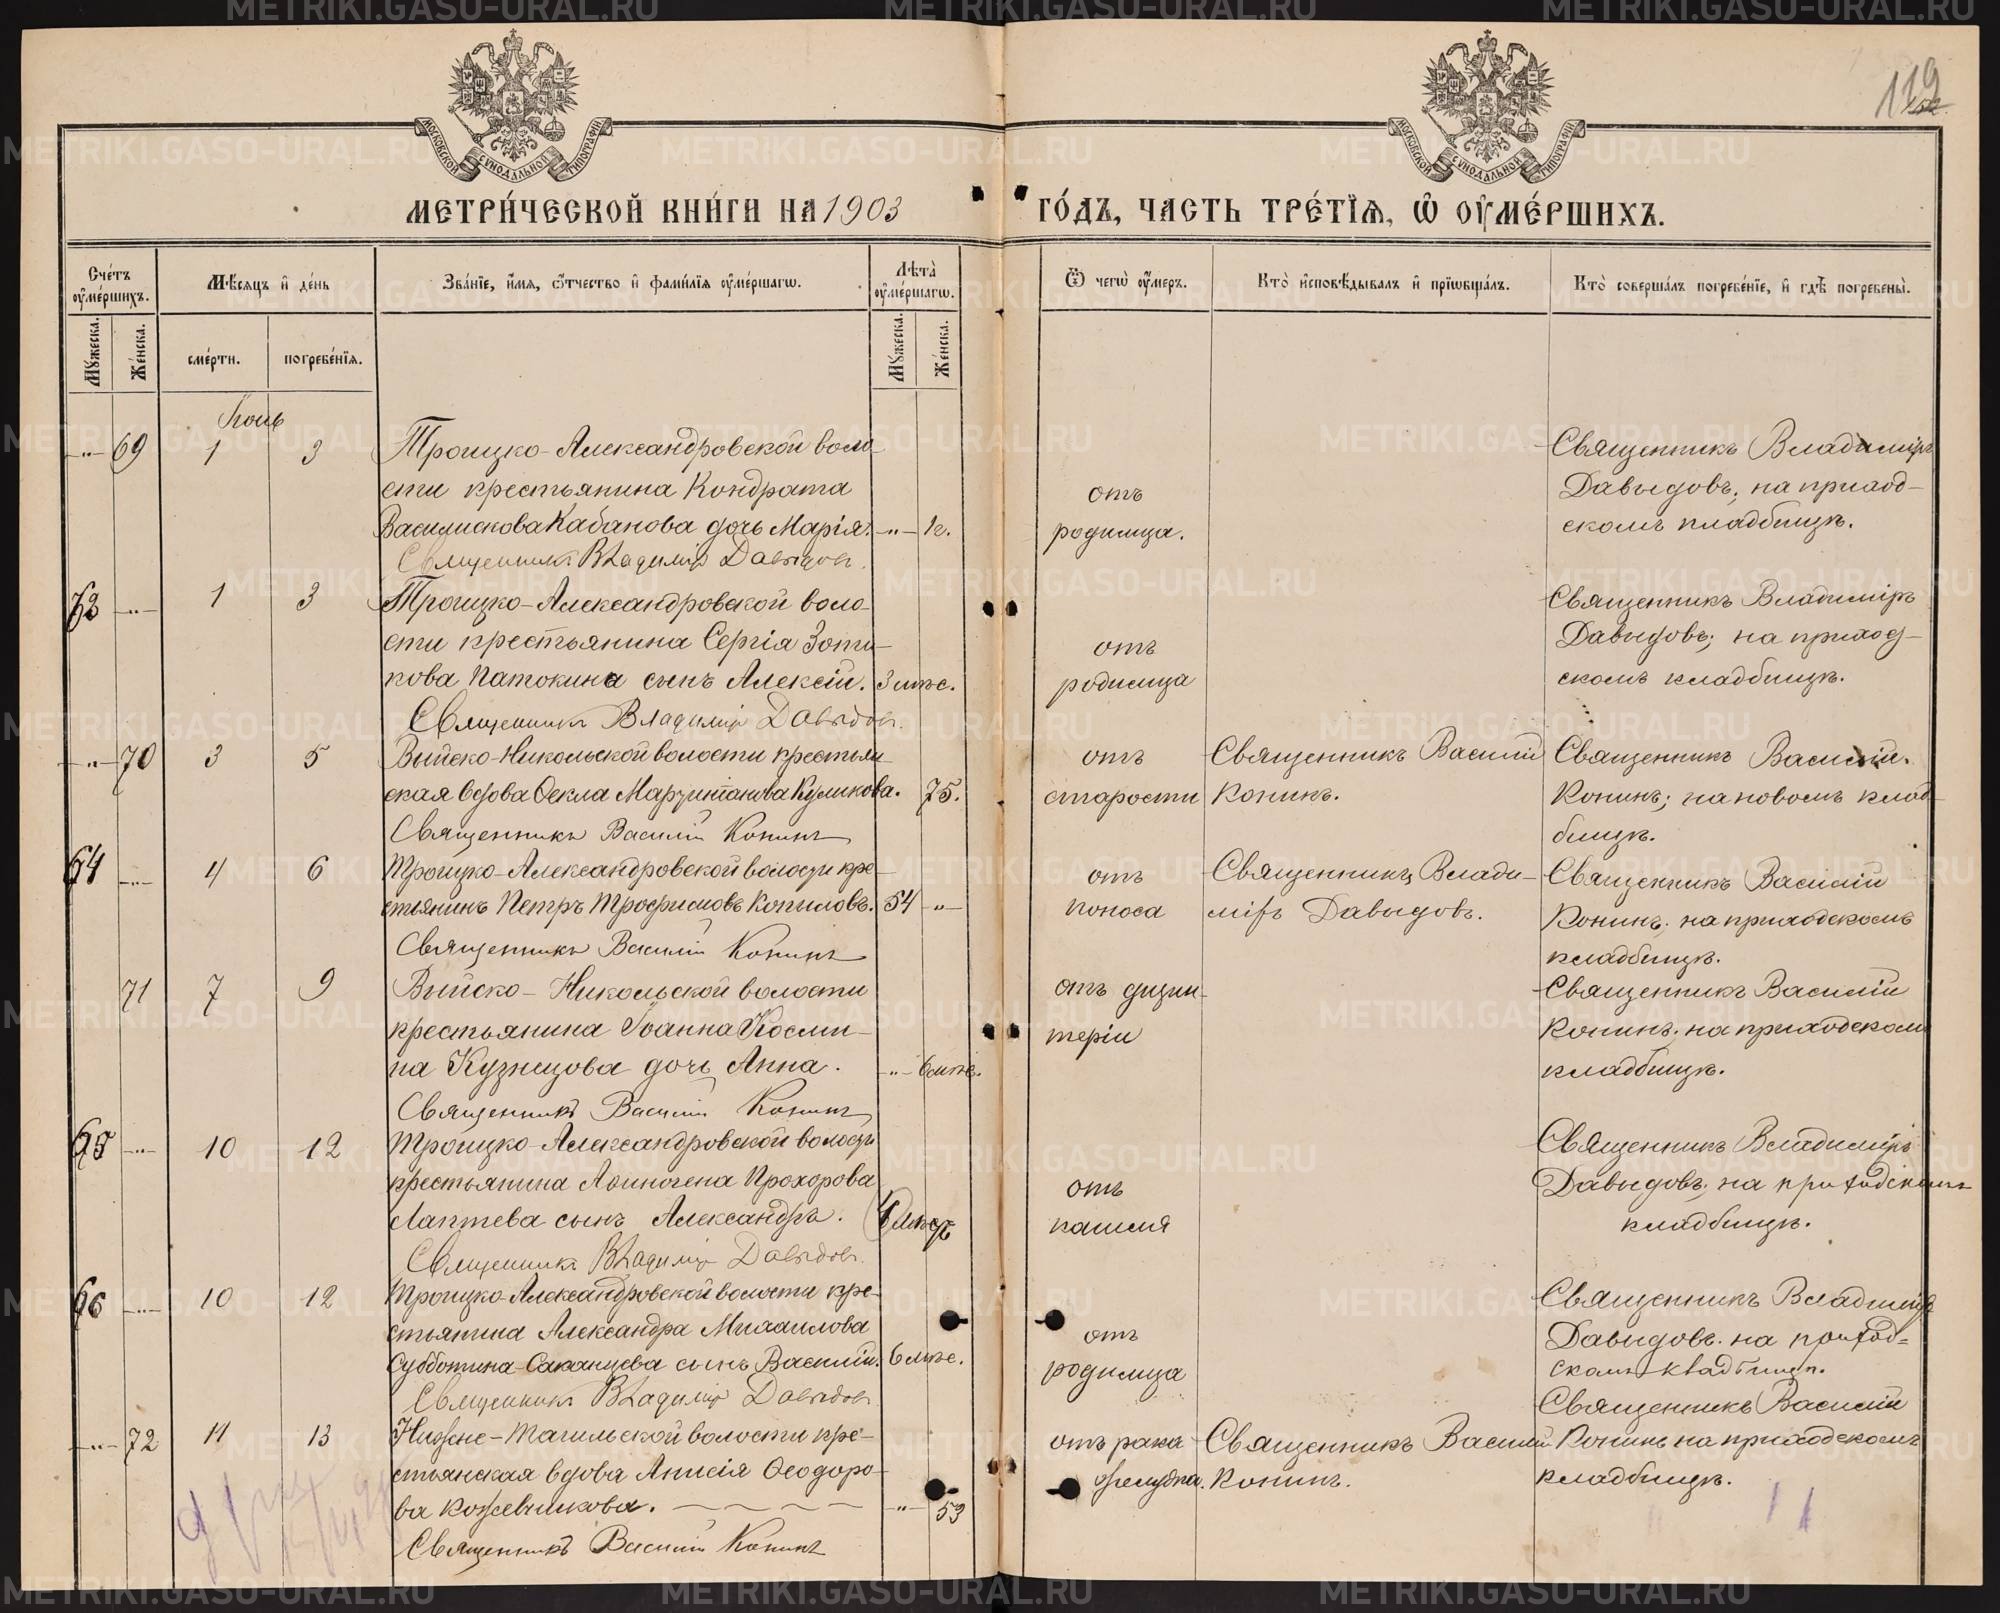 119
МОСКОВСКОЙ СѴНОДАЛЬНОЙ ТИПОГРАФІИ
МОСКОВСКОЙ СѴНОДАЛЬНОЙ ТИПОГРАФІИ
МЕТРИ́ЧЕСКОЙ КНИ́ГИ НА 1903 ГО́ДЪ, ЧАСТЬ ТРЕ́ТІЯ, Ѡ ОУ҆МЕ́РШИХЪ.
Сче́тъ оу҆ме́ршихъ.
Мꙋ́жеска.
Же́нска.
Мѣ́сяцъ и҆ де́нь
сме́рти.
погребе́нія.
Зва́ніе, и҆́мя, ѻ҆́тчество и҆ фами́лія оу҆ме́ршагѡ.
Лѣ́та оу҆ме́ршагѡ.
Мꙋ́жеска.
Же́нска.
Ѿ чегѡ̀ оу҆́меръ.
Кто̀ и҆сповѣ́дывалъ и҆ прїѡбща́лъ.
Кто̀ соверша́лъ погребе́ніе, и҆ гдѣ̀ погребены̀.
Іюнь
-"- 69 1 3
Троицко-Александровской воло-
сти крестьянина Кондрата
Василискова Кабанова дочь Марія. -"- 1г.
Священникъ Владиміръ Давыдовъ.
отъ
родимца.
Священникъ Владиміръ
Давыдовъ, на приход-
скомъ кладбищѣ.
-"- 1 3
Троицко-Александровской воло-
сти крестьянина Сергія Зоти-
кова Патокина сынъ Алексій. 3 мѣс.
Священникъ Владиміръ Давыдовъ.
отъ
родимца
Священникъ Владиміръ
Давыдовъ; на приход-
скомъ кладбищѣ.
-"- 70 3 5
Выйско-Никольской волости крестьян-
ская вдова Ѳекла Кумикова. 75.
Священникъ Василій Конинъ
отъ
старости
Священникъ Василій
Конинъ.
Священникъ Василій.
Конинъ; на новомъ клад-
бищѣ.
64 -"- 4 6
Троицко-Александровской волости кре-
стьянинъ Петръ Трофимовъ Копыловъ. 54 -"-
Священникъ Василій Конинъ
отъ
поноса
Священникъ Влади-
міръ Давыдовъ.
Священникъ Василій
Конинъ. на приходскомъ
кладбищѣ.
71 7 9
Выйско-Никольской волости
крестьянина Іоанна Косми-
на Кузнецова дочь Анна. -"- 6 мѣс.
Священникъ Василій Конинъ
отъ дизин-
теріи
Священникъ Василій
Конинъ. на приходском
кладбищѣ.
65 -"- 10 12
Троицко-Александровской волости
крестьянина Аѳиногена Прохорова
Лаптева сынъ Александръ.
Священникъ Владиміръ Давыдовъ.
отъ
кашля
Священникъ Владиміръ
Давыдовъ, на приходскомъ
кладбищѣ.
66 -"- 10 12
Троицко-Александровской волости кре-
стьянина Александра Михаилова
Субботина-Саканцева сынъ Василій. 6 мѣс.
Священникъ Владиміръ Давыдовъ
отъ
родимца
Священникъ Владиміръ
Давыдовъ. на приход-
скомъ кладбищѣ.
-"- 72 11 13
Нижне-Тагильской волости кре-
стьянская вдова Анисія Ѳеодоро-
ва Кожевникова. -"- 53
Священникъ Василій Конинъ
отъ рака
желудка.
Священникъ Василій
Конинъ.
Священникъ Василій
Конинъ на приходскомъ
кладбищѣ.
METRIKI.GASO-URAL.RU